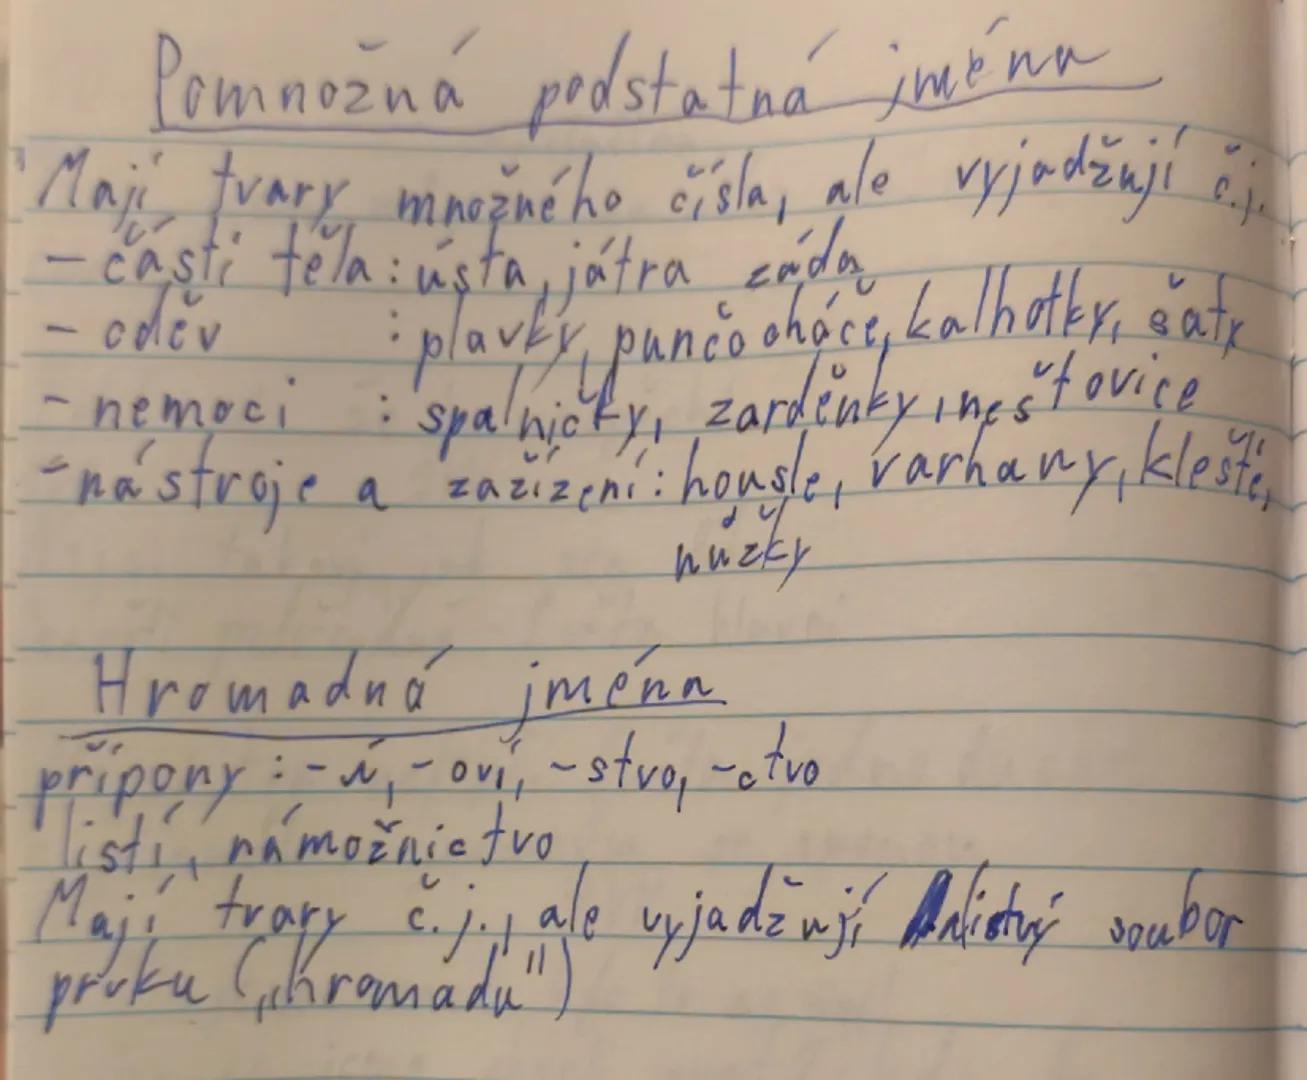 Pomnožná podstatná jména
Mají tvary množného čísla, ale vyjadžují č.j.
- části těla: ústa, játra záda
- oděv : plavky, punčocháče, kalhotky, šaty
- nemoci : spalničky, zarděnky, neštovice
- nástroje a zazízení: housle, varhany, kleště,
nůžky
Hromadná jména
přípony : -í, -oví, -stvo, -ctvo
listí, námožnictvo
Mají tvary č.j., ale vyjadžují soubor
prvku („hromadu")